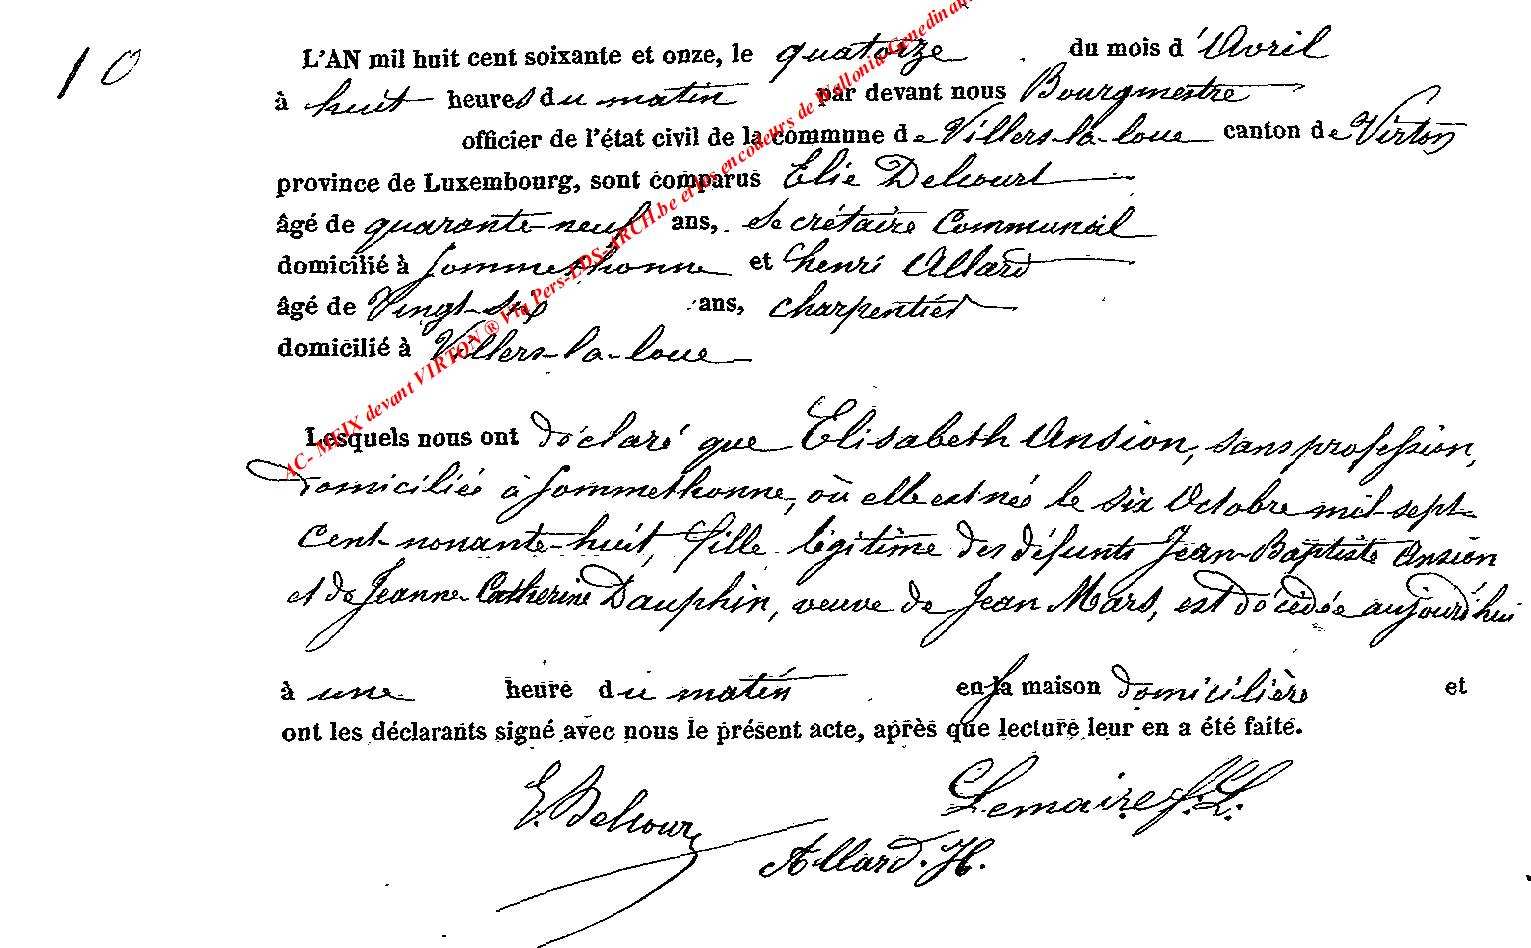 10
L'AN mil huit cent soixante et onze, le quatorze du mois d'Avril
à huit heures du matin par devant nous Bourgmestre
officier de l'état civil de la commune de Villers-la-loue canton de Virton
province de Luxembourg, sont comparus Elie Delcourt
âgé de quarante-neuf ans, Secrétaire Communal
domicilié à Sommethonne et henri Allard
âgé de Vingt-six ans, charpentier
domicilié à Villers-la-loue
AC- MEIX devant VIRTON ® Via Pers-EDS-ARCH.be et les encodeurs de Wallonia-Genedinant
Lesquels nous ont déclaré que Elisabeth Ansion, sans profession,
domiciliée à Sommethonne, où elle est née le six Octobre mil-sept-
cent-nonante-huit, fille légitime des défunts Jean-Baptiste Ansion
et de Jeanne-Catherine Dauphin, veuve de Jean Mars, est décédée aujourd'hui
à une heure du matin en sa maison domicilière et
ont les déclarants signé avec nous le présent acte, après que lecture leur en a été faite.
E. Delcour
Lemaire J. L.
Allard. H.